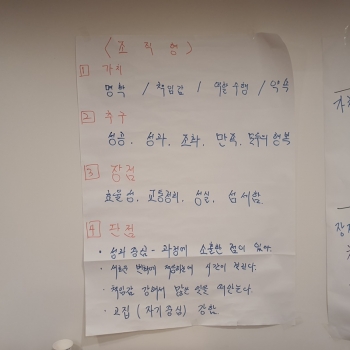 < 조 직 형 >
1 가치
명확 / 책임감 / 역할 수행 / 약속
2 추구
성공, 성과, 조화, 만족, 모두의 행복
3 장점
효율성, 교통정리, 성실, 섬세함.
4 단점
• 성과 중심 - 과정에 소홀한 점이 있다.
• 새로운 변화에 적응하는데 시간이 걸린다.
• 책임감 강해서 많은 일을 떠안는다.
• 고집 (자기중심) 강함